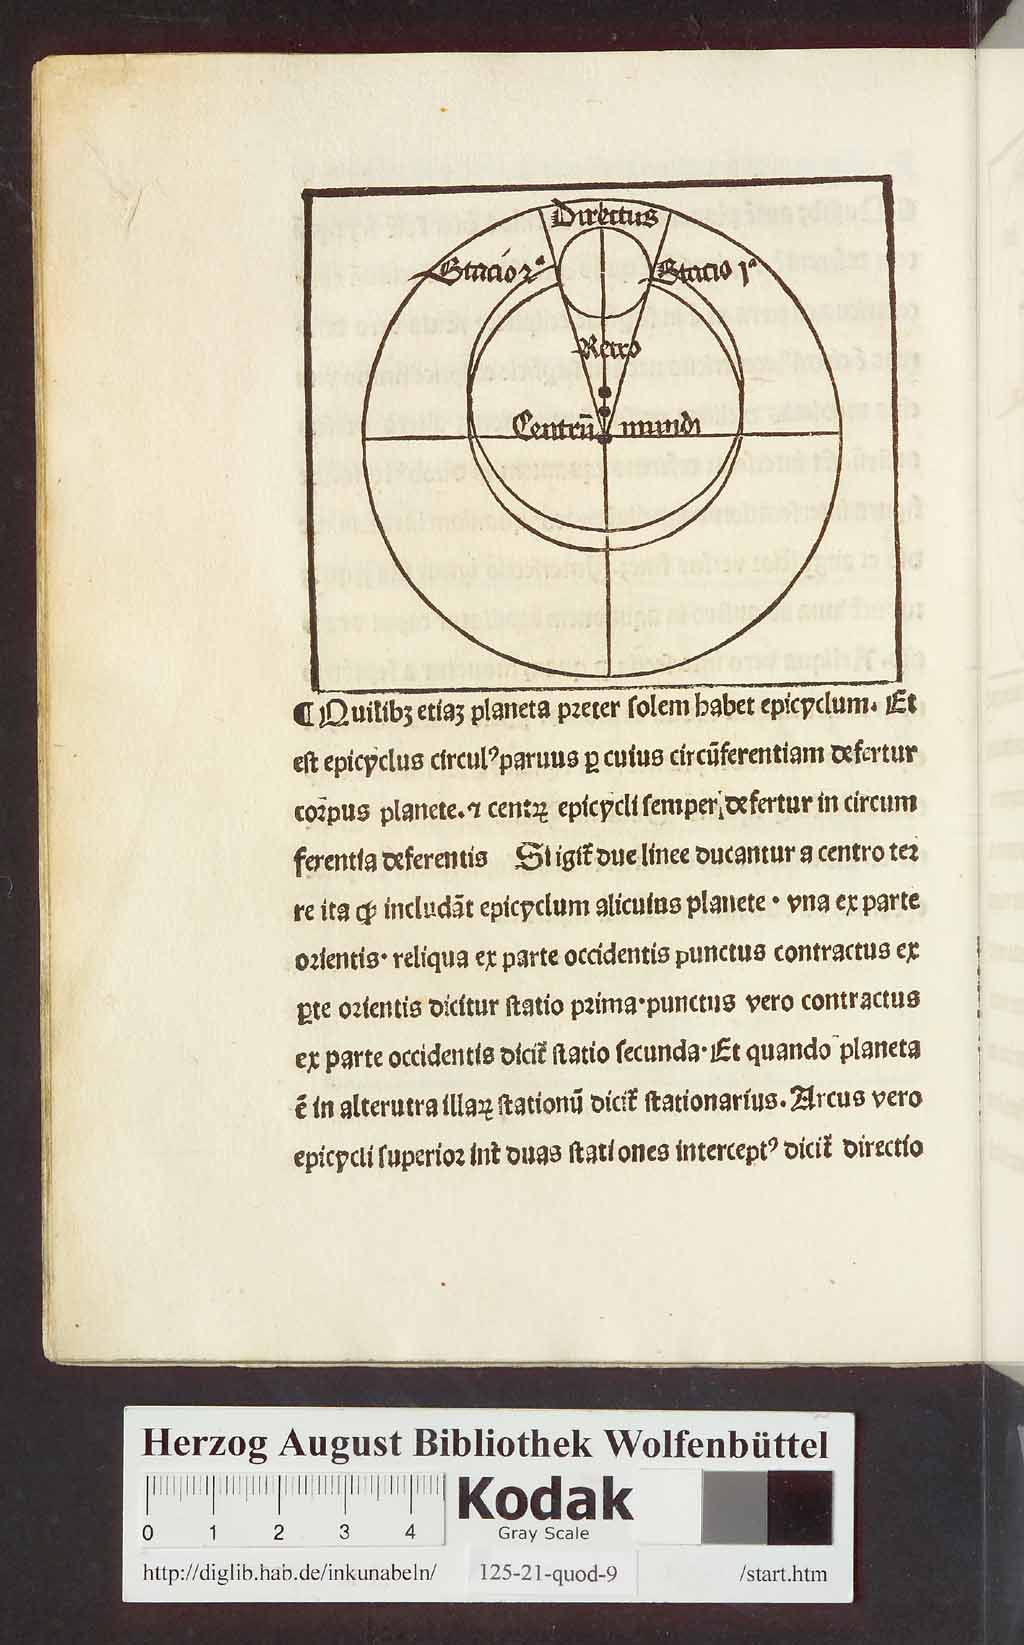 Directus
Stacio 2ᵃ
Stacio 1ᵃ
Retro
Centrū mundi
¶ Quilibꝫ etiaꝫ planeta preter solem habet epicyclum. Et
est epicyclus circulꝰ paruus ꝑ cuius circūferentiam defertur
corpus planete. ⁊ centꝝ epicycli semper defertur in circum
ferentia deferentis Si igit̃ due linee ducantur a centro ter
re ita ꝙ includāt epicyclum alicuius planete · vna ex parte
orientis· reliqua ex parte occidentis punctus contractus ex
ꝑte orientis dicitur statio prima·punctus vero contractus
ex parte occidentis dicit̃ statio secunda·Et quando planeta
ē in alterutra illaꝝ stationū dicit̃ stationarius. Arcus vero
epicycli superior int̃ duas stationes interceptꝰ dicit̃ directio
Herzog August Bibliothek Wolfenbüttel
0 1 2 3 4
Kodak
Gray Scale
http://diglib.hab.de/inkunabeln/ 125-21-quod-9 /start.htm